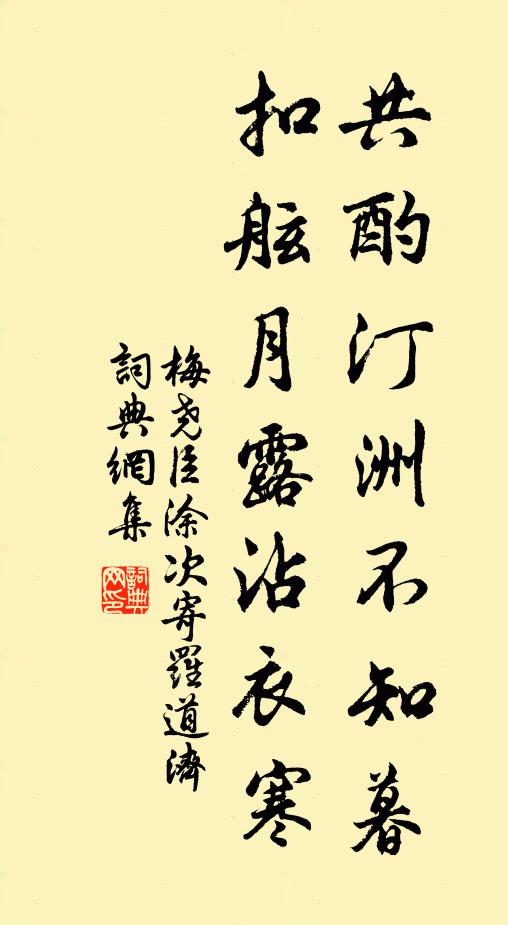 共酌汀洲不知暮
扣舷月露沾衣寒
梅尧臣涂次寄羅道濟
詞典網集
詞典
网印